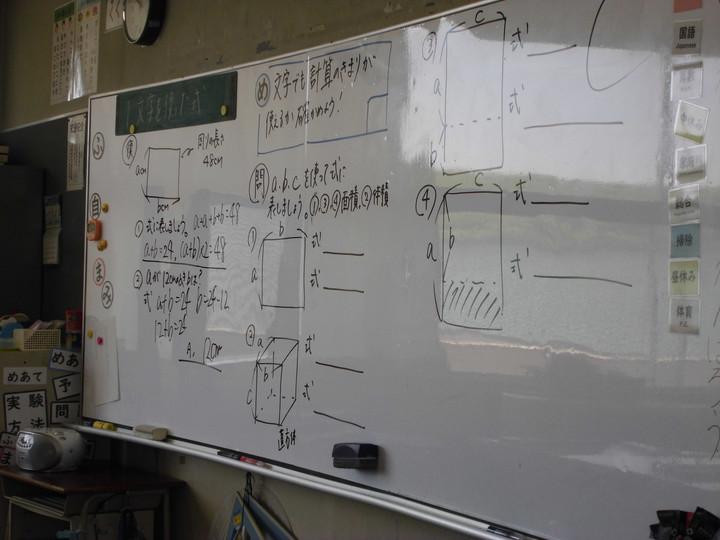 文字を使った式
ふ
自
ま
み
復
周りの長さ
48cm
acm
bcm
① 式に表しましょう。 a+a+b+b=48
a+b=24, (a+b)×2=48
② aが12cmのときbは?
式 a+b=24 b=24-12
12+b=24
A. 12cm
め 文字でも計算のきまりが
使えるか確かめよう!
問 a.b.cを使って式に
表しましょう。①③④面積、②体積
①
b
a
式
式
②
a
b
c
直方体
式
式
③
c
a
b
式
式
④
c
a
b
式
式
国語
Japanese
掃除
昼休み
体育
P.E.
めあ
めあて
予
実験
問
方法
ふ
ま